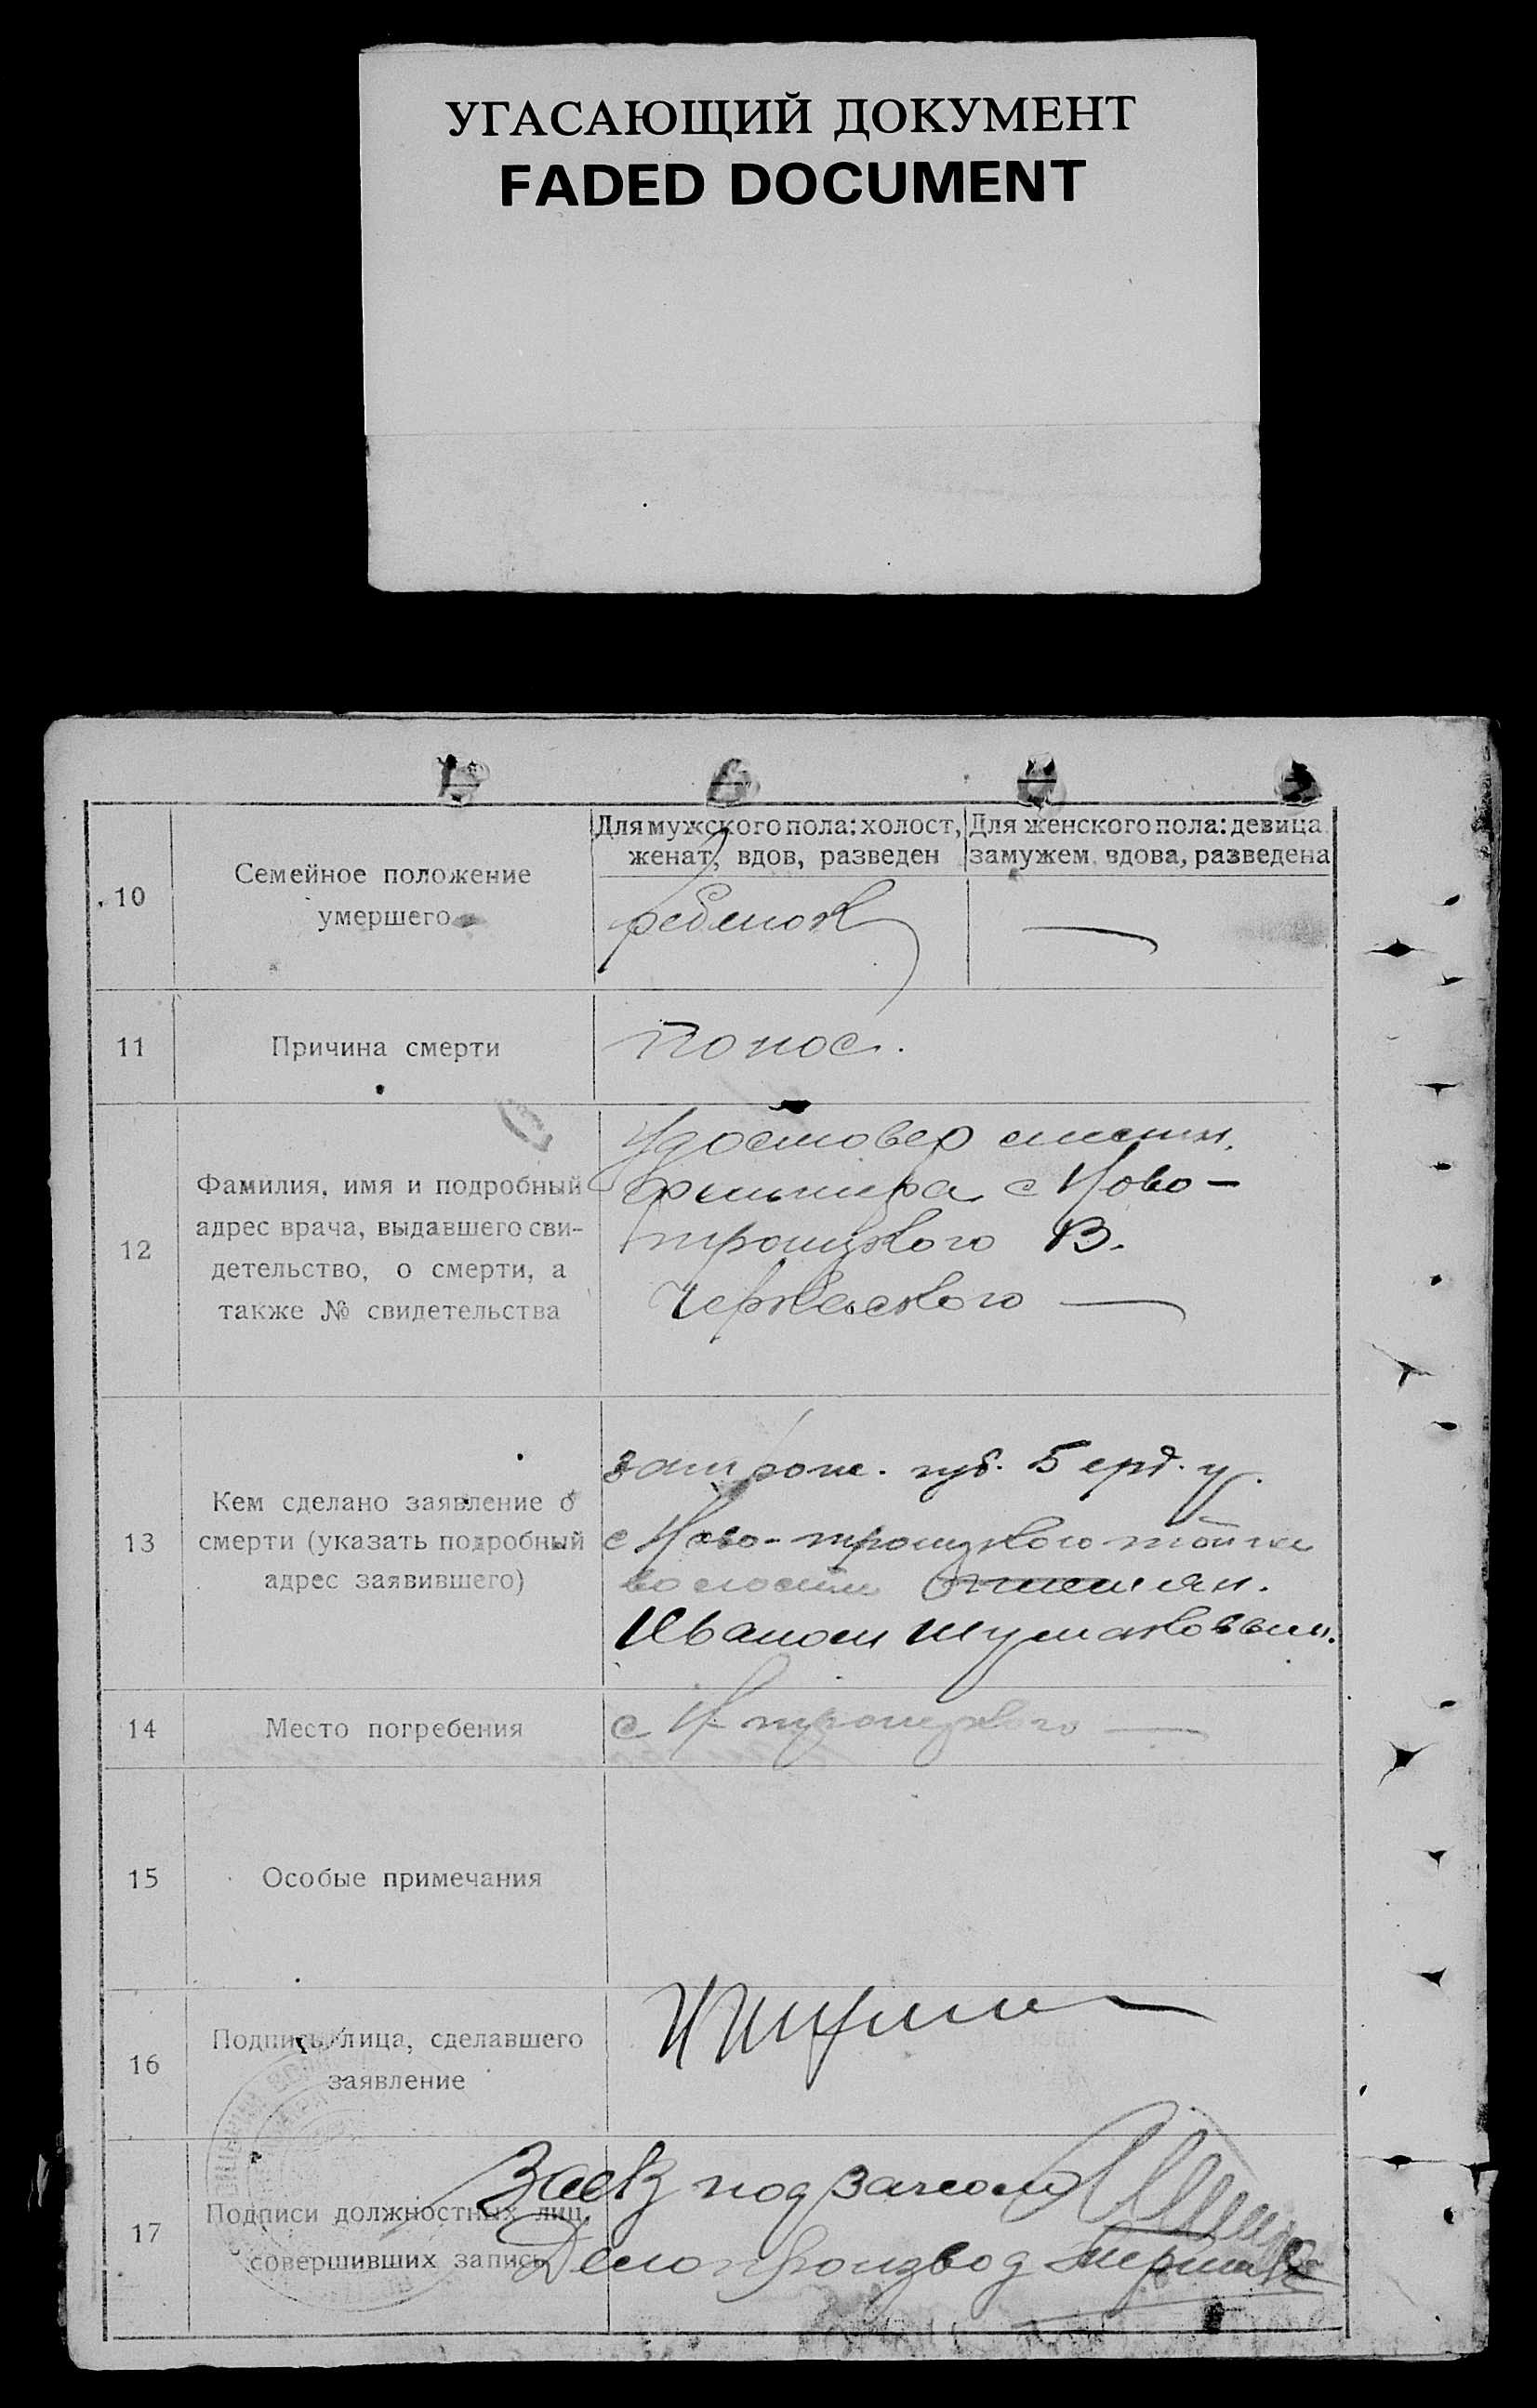 УГАСАЮЩИЙ ДОКУМЕНТ
FADED DOCUMENT
10
Семейное положение
умершего
Для мужского пола: холост,
женат, вдов, разведен
Для женского пола: девица
замужем, вдова, разведена
ребенок
11
Причина смерти
понос.
12
Фамилия, имя и подробный
адрес врача, выдавшего сви-
детельство, о смерти, а
также № свидетельства
Удостовер
фельшера с Ново-
троицкого В.
Черкаского
13
Кем сделано заявление о
смерти (указать подробный
адрес заявившего)
запорож. губ. Берд. у.
с Ново-троицкого тойже
волости
Иваном
14
Место погребения
с Н троицкого
15
Особые примечания
16
Подпись лица, сделавшего
заявление
17
Подписи должностных лиц,
совершивших запись
Зав подзагсом
Делопроизвод